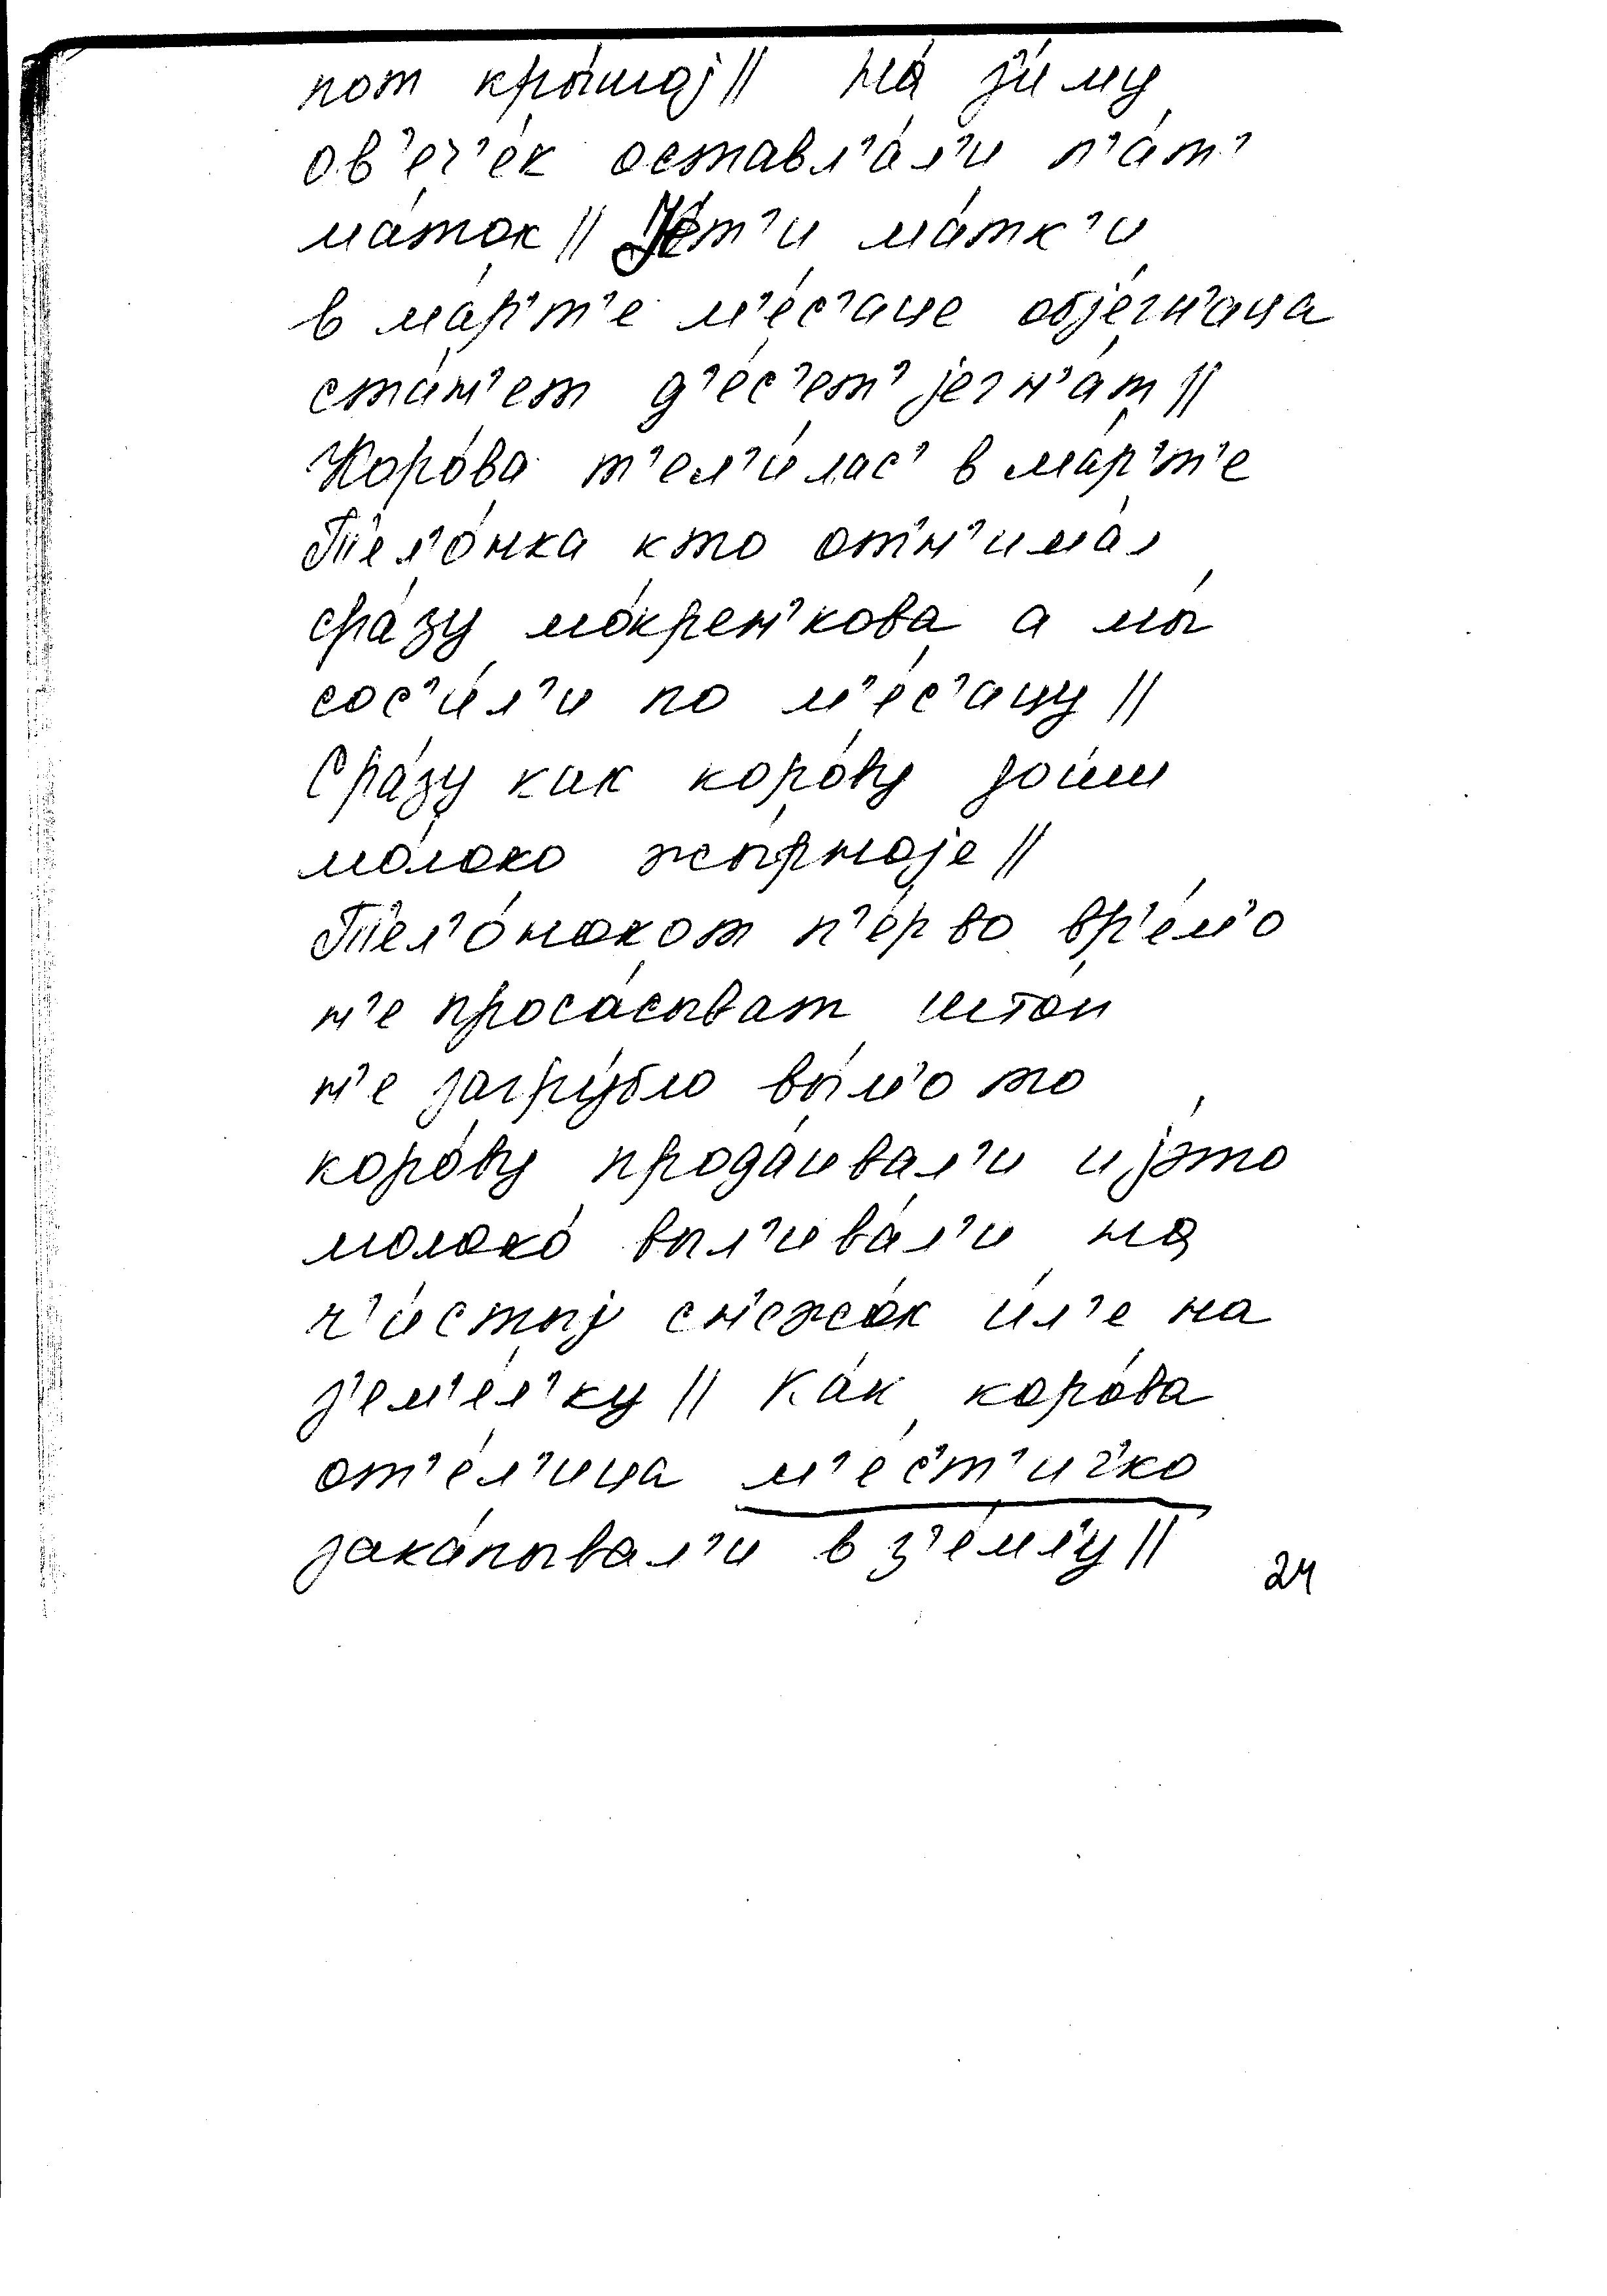 пот кры́шај || На́ з'и́му
ов'еч'е́к оставл'а́л'и п'а́т'
ма́ток || Jéт'и ма́тк'и
в ма́р'т'е м'е́с'аце објегн'аца
ста́н'ет д'е́с'ет' јегн'а́т ||
Коро́ва т'ел'и́лас' в ма́р'т'е
Т'ел'о́нка кто отн'има́л
сра́зу мо́крен'кова а мы́
сос'и́л'и по м'е́с'ацу ||
Сра́зу как коро́ву до́им
мо́локо жы́рноје ||
Т'ел'о́нокот п'е́рво вр'е́м'о
н'е проса́сыват штоп
н'е загру́бло вы́м'о то
коро́ву прода́ивал'и и је́то
молоко́ выл'ива́л'и на
ч'и́стыј сн'ежо́к и́л'е на
з'ем'е́л'ку || Ка́к коро́ва
от'е́л'ица м'е́с'т'ич'ко
зака́пывал'и в з'е́мл'у ||
24